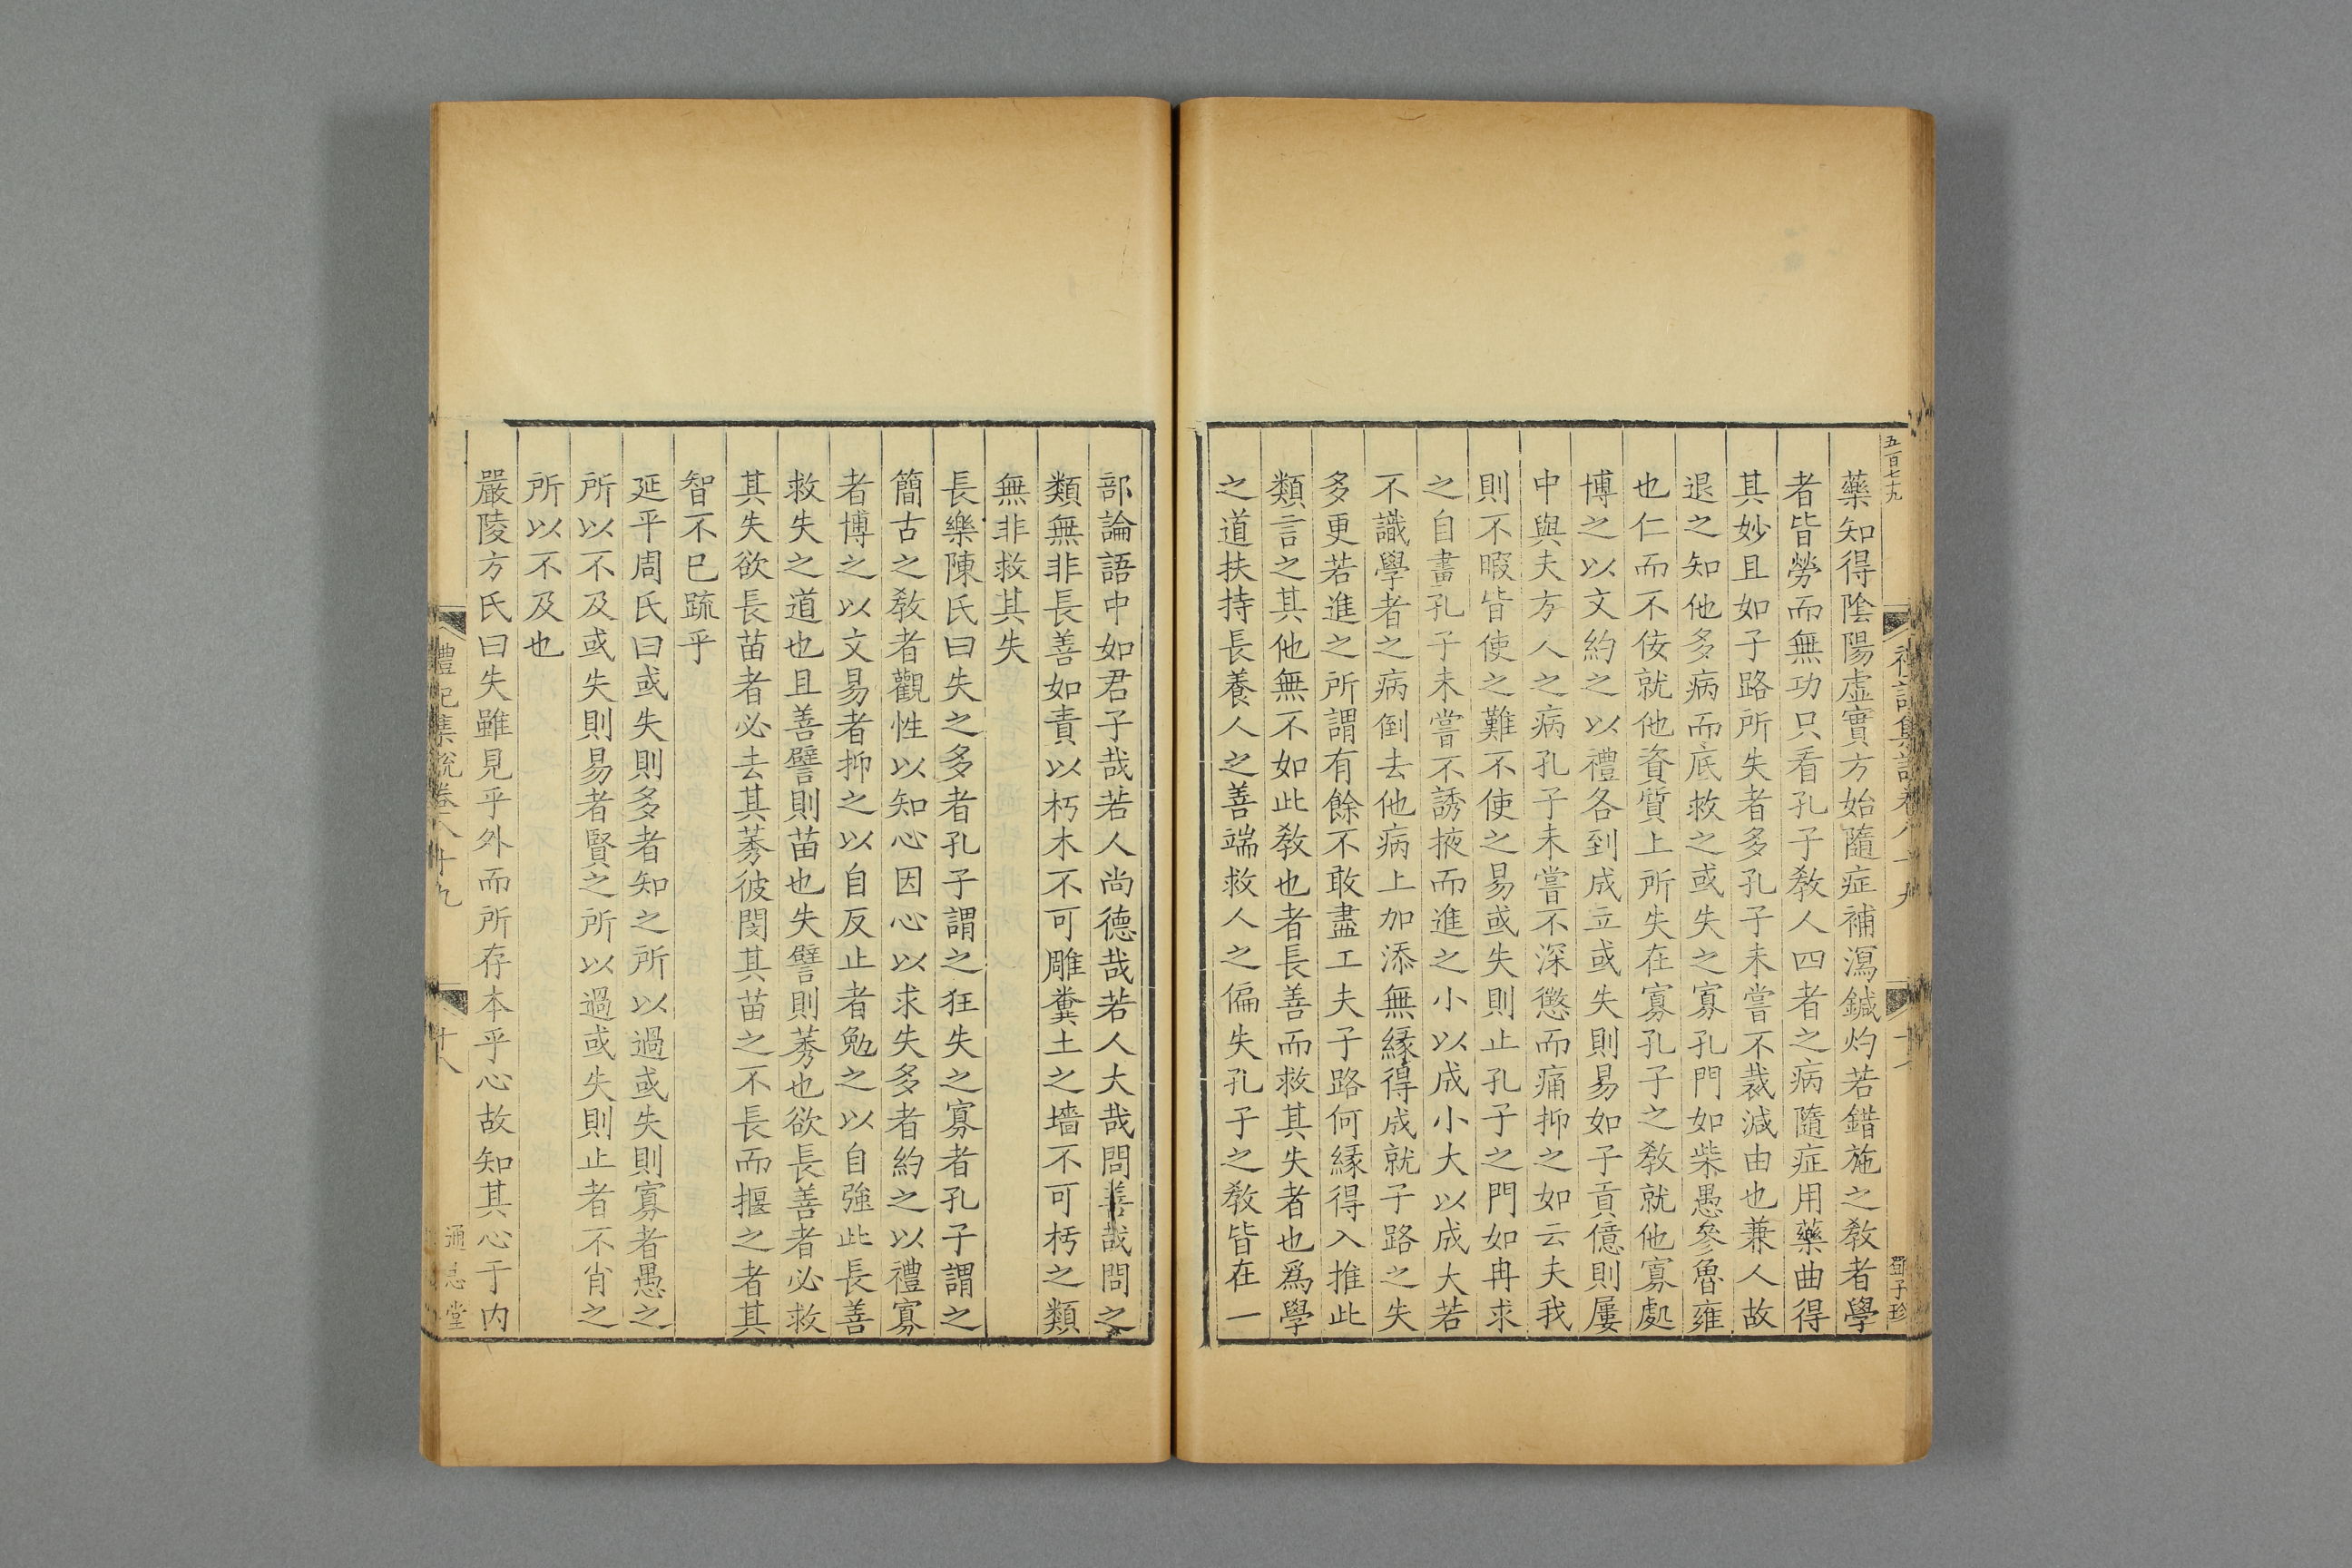 五百七十九
鄧子珍
藥知得陰陽虛實方始隨症補瀉鍼灼若錯施之教者學
者皆勞而無功只看孔子教人四者之病隨症用藥曲得
其妙且如子路所失者多孔子未嘗不裁減由也兼人故
退之知他多病而底救之或失之寡孔門如柴愚參魯雍
也仁而不佞就他資質上所失在寡孔子之教就他寡處
博之以文約之以禮各到成立或失則易如子貢億則屢
中與夫方人之病孔子未嘗不深懲而痛抑之如云夫我
則不暇皆使之難不使之易或失則止孔子之門如冉求
之自畫孔子未嘗不誘掖而進之小以成小大以成大若
不識學者之病倒去他病上加添無緣得成就子路之失
多更若進之所謂有餘不敢盡工夫子路何緣得入推此
類言之其他無不如此教也者長善而救其失者也爲學
之道扶持長養人之善端救人之偏失孔子之教皆在一
部論語中如君子哉若人尚德哉若人大哉問善哉問之
類無非長善如責以朽木不可雕糞土之墻不可杇之類
無非救其失
長樂陳氏曰失之多者孔子謂之狂失之寡者孔子謂之
簡古之教者觀性以知心因心以求失多者約之以禮寡
者博之以文易者抑之以自反止者勉之以自強此長善
救失之道也且善譬則苗也失譬則莠也欲長善者必救
其失欲長苗者必去其莠彼閔其苗之不長而揠之者其
智不已疏乎
延平周氏曰或失則多者知之所以過或失則寡者愚之
所以不及或失則易者賢之所以過或失則止者不肖之
所以不及也
嚴陵方氏曰失雖見乎外而所存本乎心故知其心于内
禮記集說卷八十九
十八
通志堂